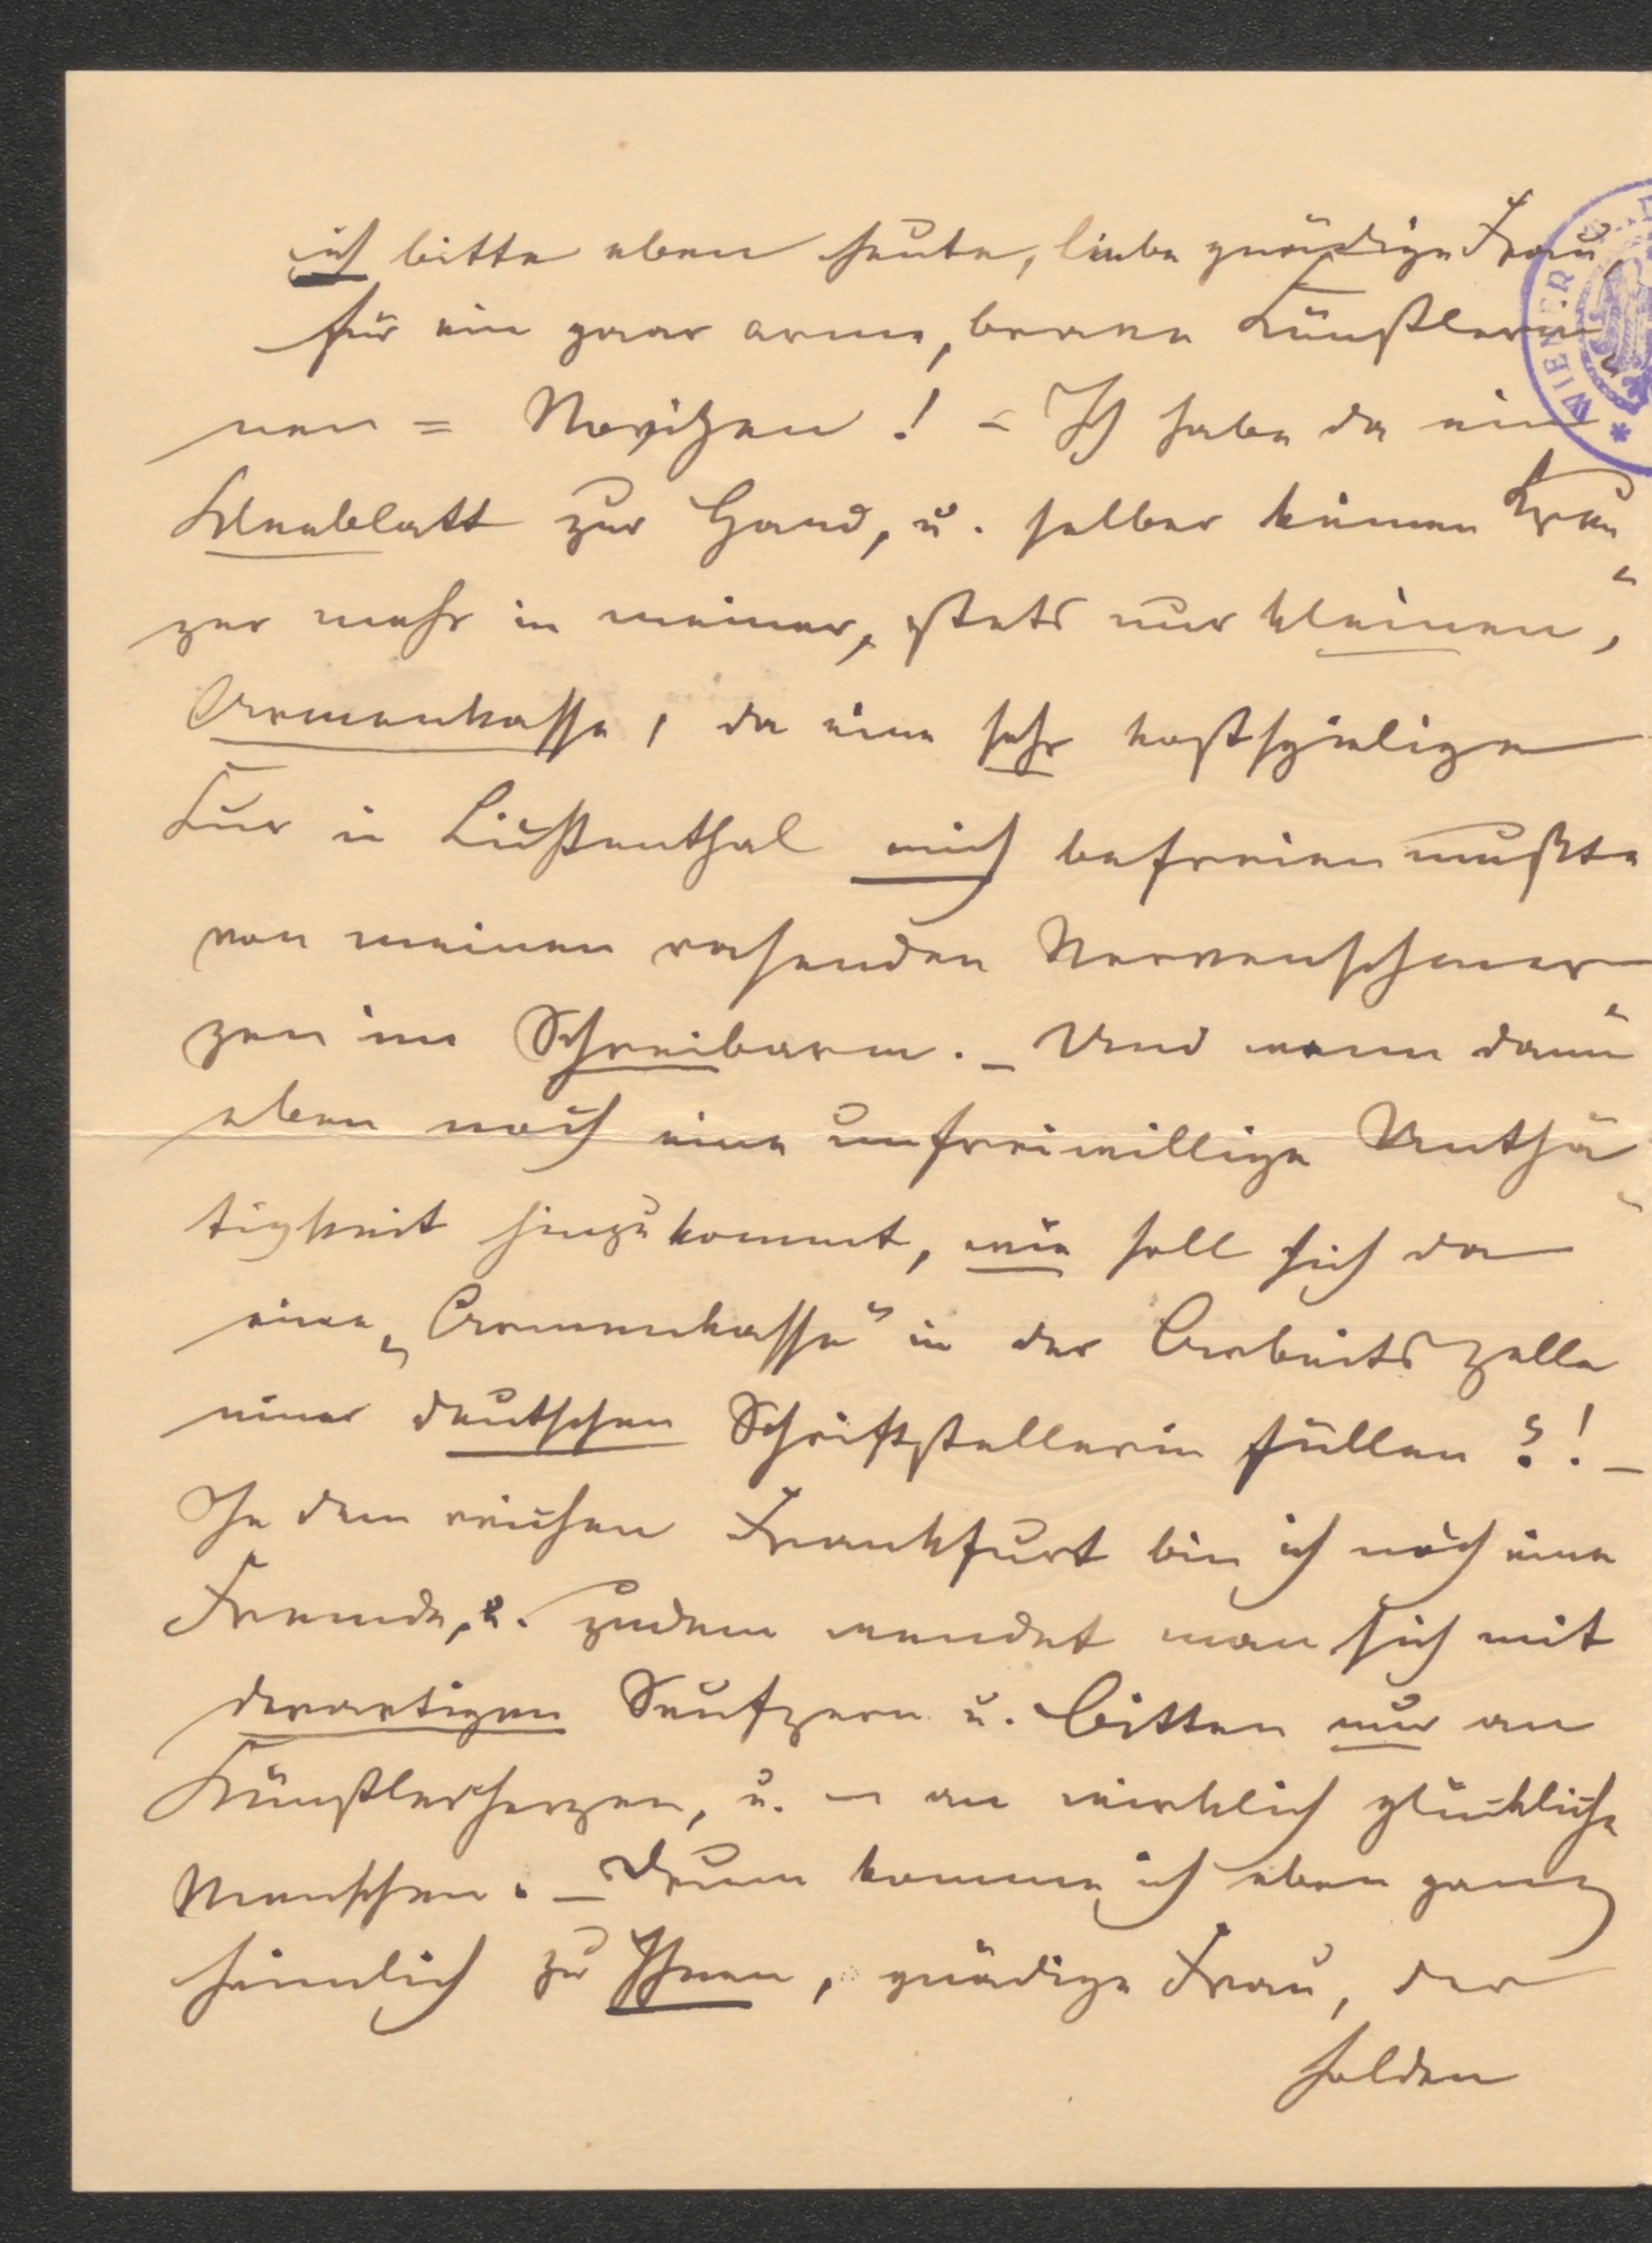 ich bitte eben heute, liebe gnädige Frau,
für ein paar arme, brave Künstlerin
nen = Novizen! – Ich habe da ein
Kleeblatt zur Hand, u. selber keinen Kreu
zer mehr in meiner, stets nur kleinen,
Armenkasse, da eine sehr kostspielige
Kur in Lichtenthal mich befreien mußte
von meinen rasenden Nervenschmer
zen im Schreibarm. – Und wenn dann
eben noch eine unfreiwillige Unthä
tigkeit hinzukommt, wie soll sich da
eine „Armenkasse" in der Arbeitszelle
einer deutschen Schriftstellerin füllen?! –
In dem reichen Frankfurt bin ich noch eine
Fremde, u. zudem wendet man sich mit
derartigen Seufzern u. Bitten nur an
Künstlerherzen, u. – an wirklich glückliche
Menschen. – Drum komme ich eben ganz
heimlich zu Ihnen, gnädige Frau, der
holden
WIENER